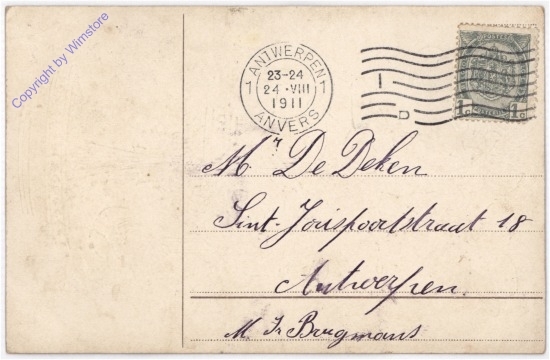 Copyright by Wimstore
1 ANTWERPEN 1
23-24
24 · VIII
1911
ANVERS
1c. 1c.
Mr De Deken
Sint-Jorispoortstraat 18
Antwerpen.
M. Fr Brugmans